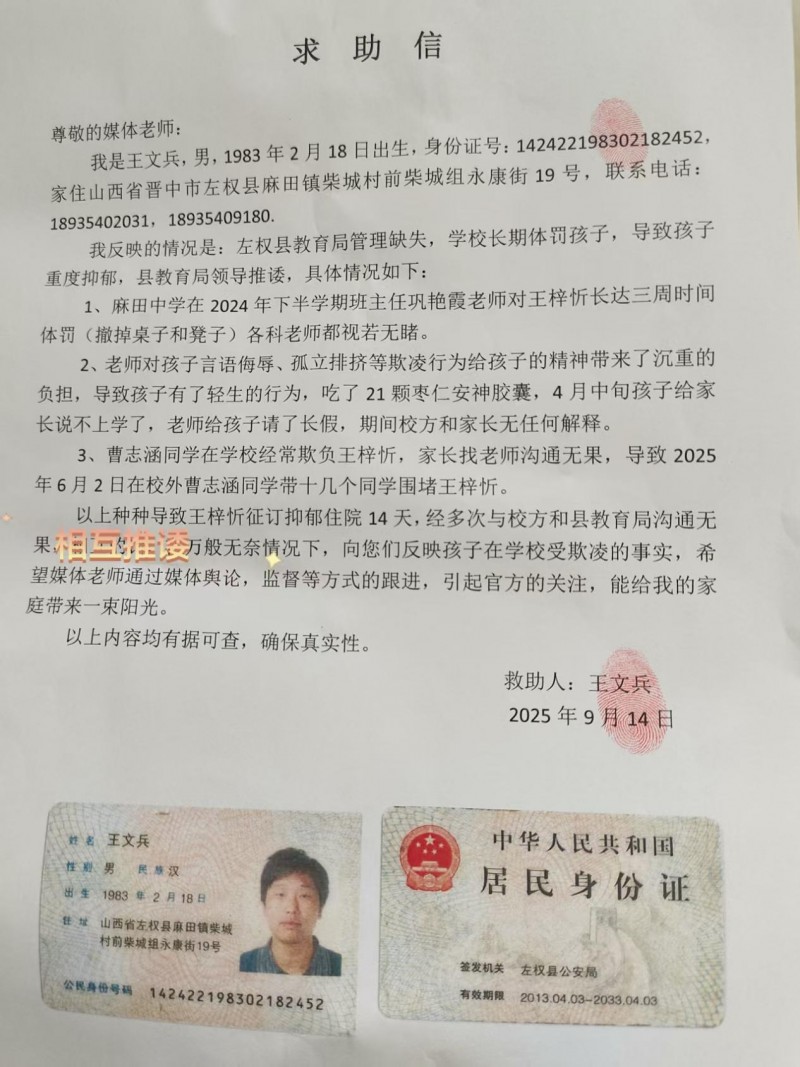 求助信
尊敬的媒体老师：
我是王文兵，男，1983年2月18日出生，身份证号：142422198302182452，
家住山西省晋中市左权县麻田镇柴城村前柴城组永康街19号，联系电话：
18935402031，18935409180.
我反映的情况是：左权县教育局管理缺失，学校长期体罚孩子，导致孩子
重度抑郁，县教育局领导推诿，具体情况如下：
1、麻田中学在2024年下半学期班主任巩艳霞老师对王梓忻长达三周时间
体罚（撤掉桌子和凳子）各科老师都视若无睹。
2、老师对孩子言语侮辱、孤立排挤等欺凌行为给孩子的精神带来了沉重的
负担，导致孩子有了轻生的行为，吃了21颗枣仁安神胶囊，4月中旬孩子给家
长说不上学了，老师给孩子请了长假，期间校方和家长无任何解释。
3、曹志涵同学在学校经常欺负王梓忻，家长找老师沟通无果，导致2025
年6月2日在校外曹志涵同学带十几个同学围堵王梓忻。
以上种种导致王梓忻征订抑郁住院14天，经多次与校方和县教育局沟通无
果，相互推诿万般无奈情况下，向您们反映孩子在学校受欺凌的事实，希
望媒体老师通过媒体舆论，监督等方式的跟进，引起官方的关注，能给我的家
庭带来一束阳光。
以上内容均有据可查，确保真实性。
救助人：王文兵
2025年9月14日
姓名 王文兵
性别 男 民族 汉
出生 1983年2月18日
住址 山西省左权县麻田镇柴城
村前柴城组永康街19号
公民身份号码 142422198302182452
中华人民共和国
居民身份证
签发机关 左权县公安局
有效期限 2013.04.03-2033.04.03